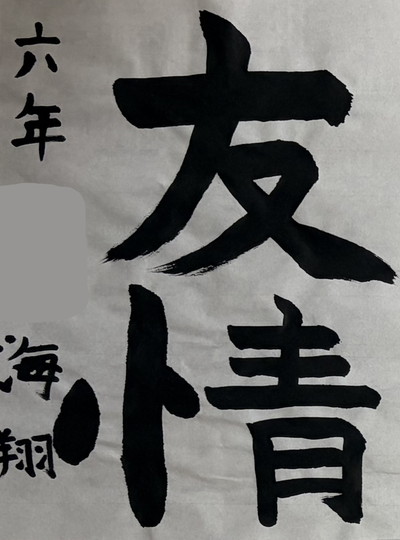 友情
六年
海翔